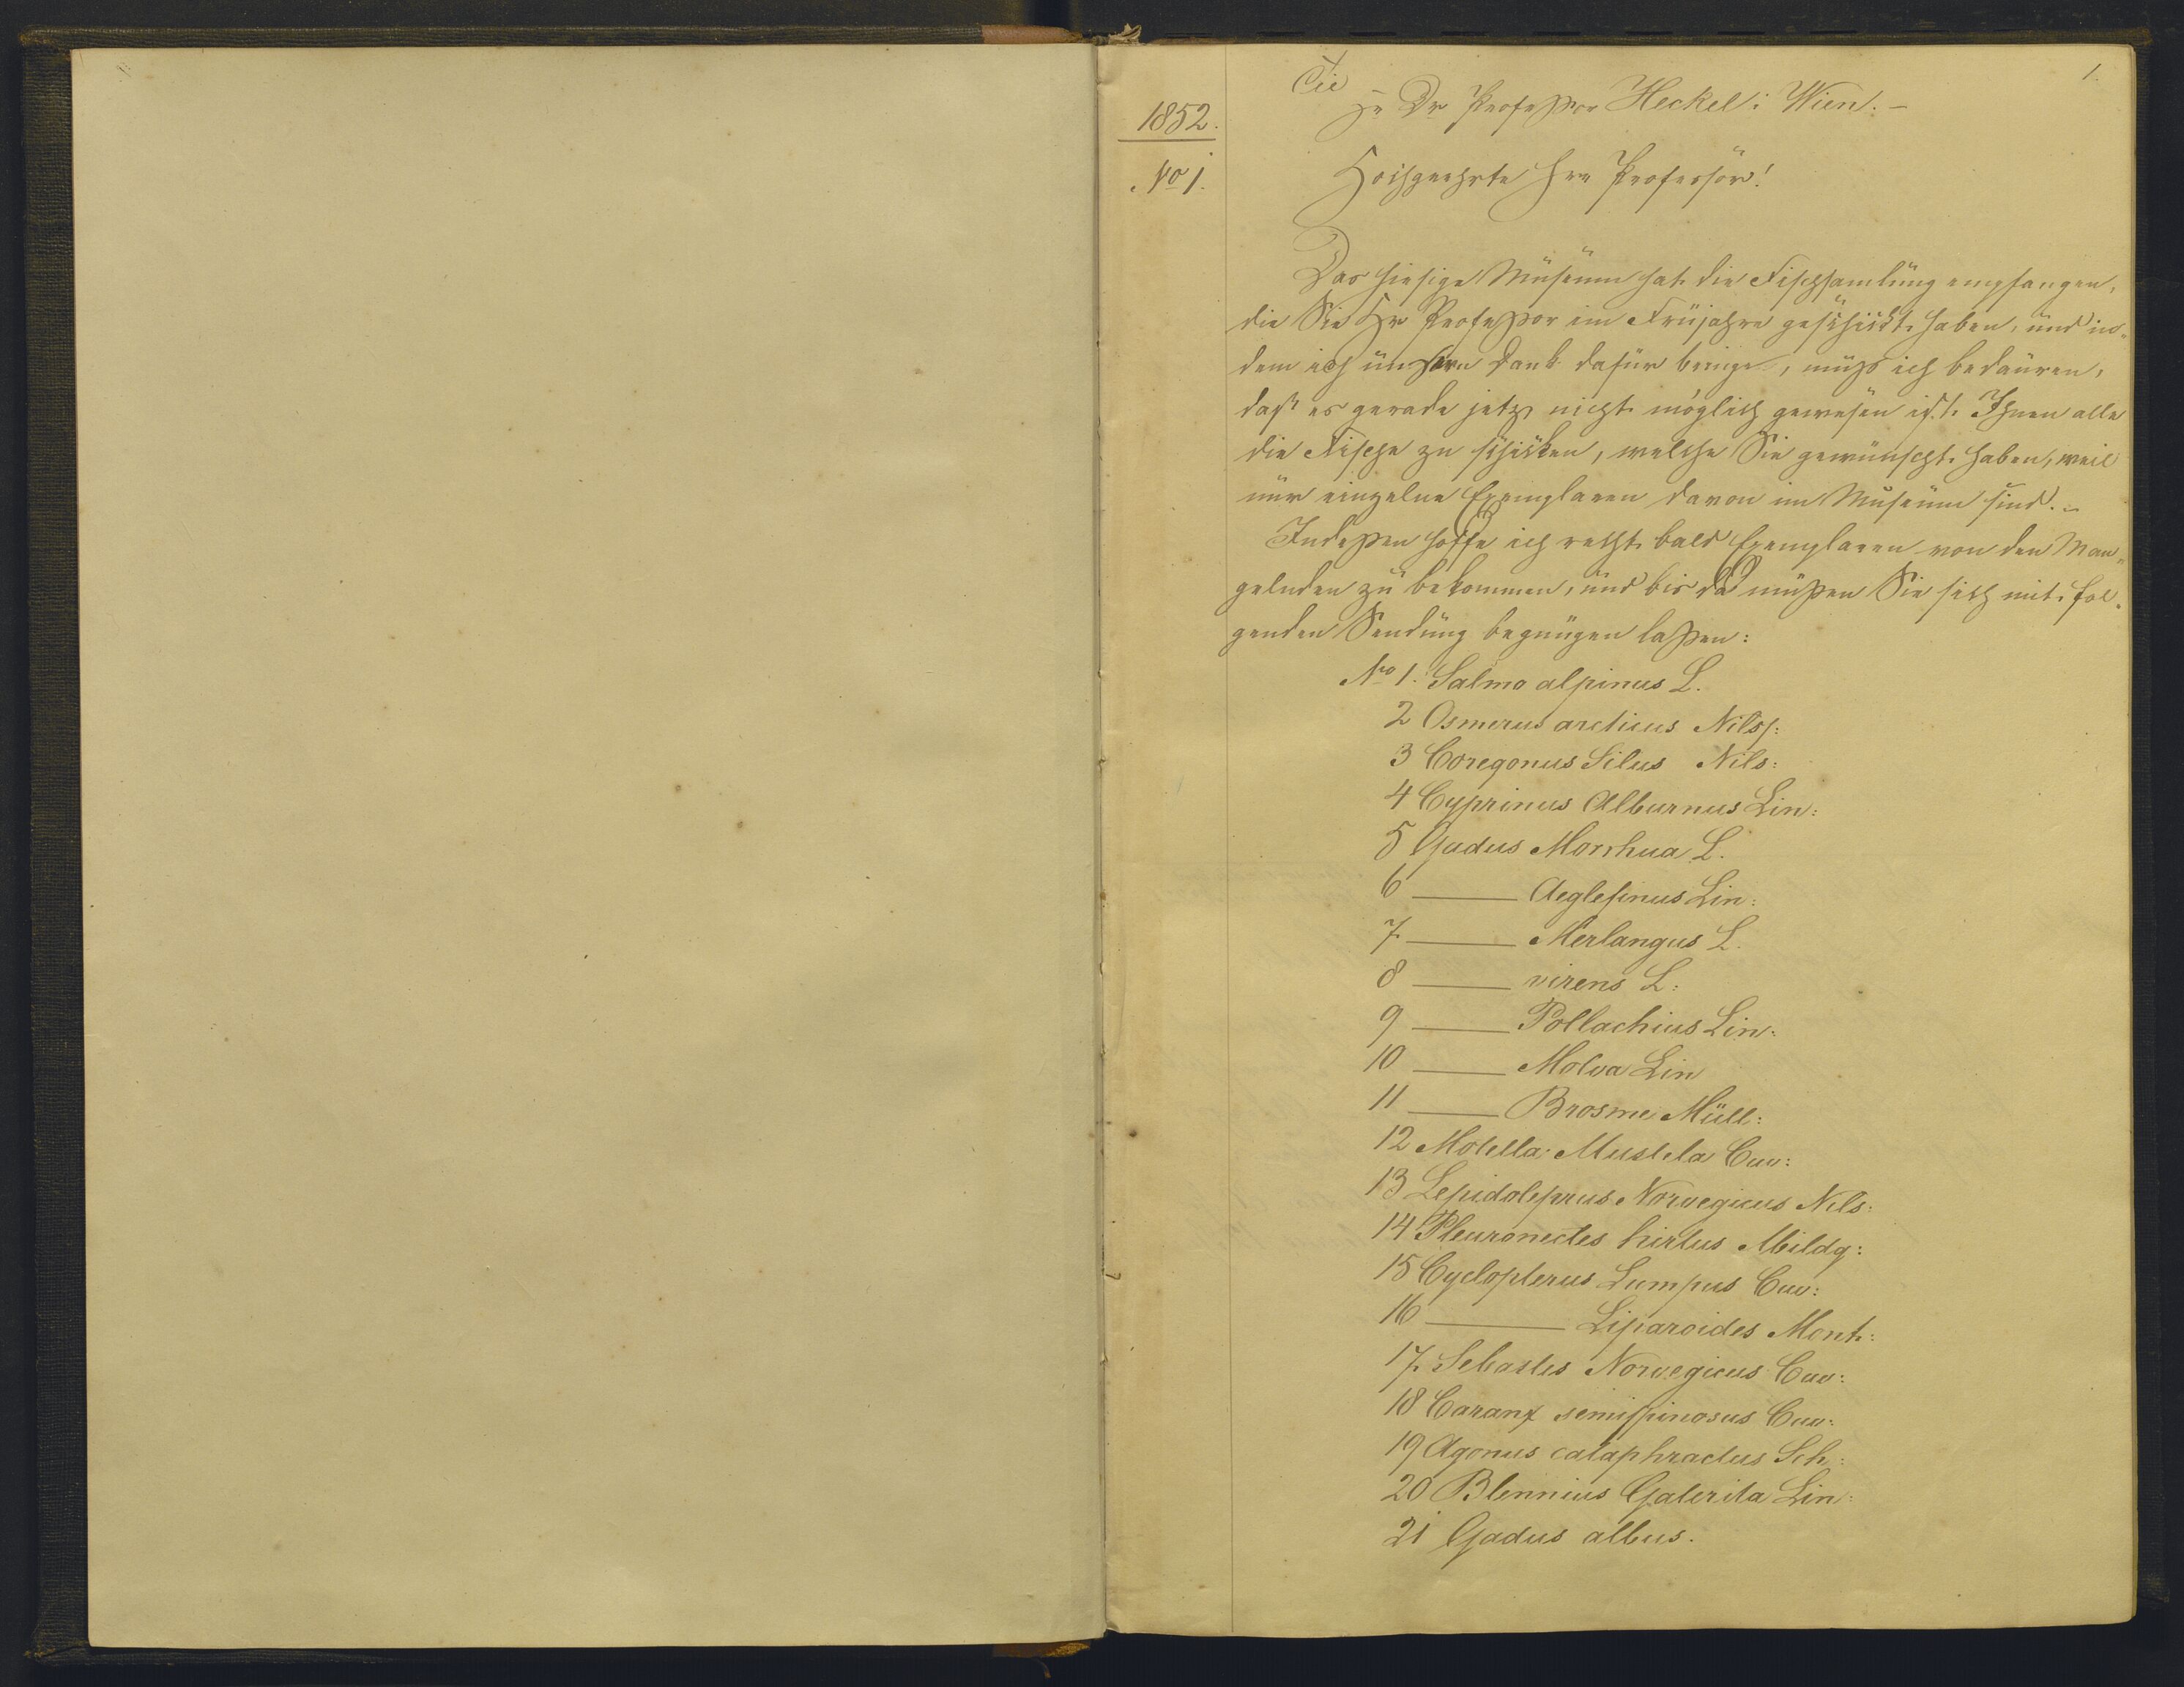 1.
Til
Hr Dr Professor Heckel i Wien. –
1852.
No 1.
Hochgeehrte Herr Professor!
Das hiesige Museum hat die Fischsamlung empfangen,
die Sie Hr Professor im Früjahre geschickt haben, und in-
dem ich unsern Dank dafür bringe, muss ich bedauren,
dass es gerade jetz nicht möglich gewesen ist Ihnen alle
die Fische zu schicken, welche Sie gewünscht haben, weil
nur einzelne Exemplaren davon im Museum sind. –
Indessen hoffe ich recht bald Exemplaren von den Man-
gelnden zu bekommen, und bis da müssen Sie sich mit fol-
genden Sendung begnügen lassen:
No 1. Salmo alpinus L.
2 Osmerus arcticus Nilss:
3 Coregonus Silus Nils:
4 Cyprinus Alburnus Lin:
5 Gadus Morrhua L.
6 —— Aeglefinus Lin:
7 —— Merlangus L.
8 —— virens L:
9 —— Pollachius Lin:
10 —— Molva Lin
11 —— Brosme Müll:
12 Motella Mustela Cuv:
13 Lepidoleprus Norvegicus Nils:
14 Pleuronectes hirtus Mildg:
15 Cyclopterus Lumpus Cuv:
16 —— Liparoides Mont:
17 Sebastes Norvegicus Cuv:
18 Caranx semispinosus Cuv:
19 Agonus cataphractus Sch:
20 Blennius Galerita Lin:
21 Gadus albus.